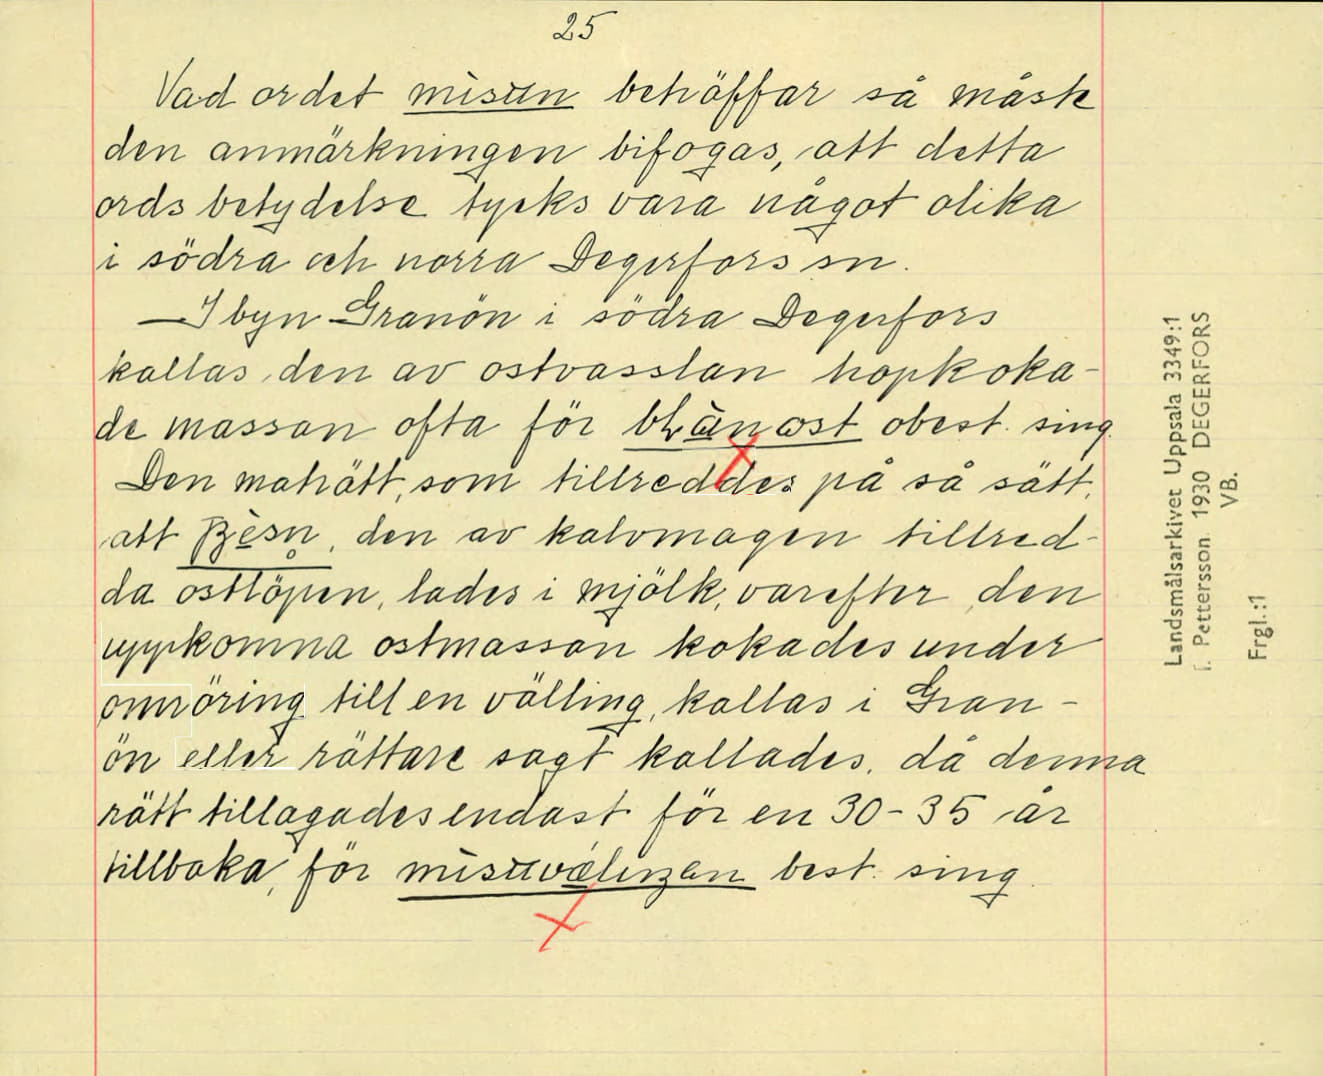 25
Vad ordet mìsʉn behöffar så måste
den anmärkningen bifogas, att detta
ords betydelse tycks vara något olika
i södra och norra Degerfors sn.
— I byn Granön i södra Degerfors
kallas den av ostvasslan hopkoka-
de massan ofta för obest. sing.
Den maträtt, som tillreddes på så sätt,
att den av kalvmagen tillred-
da ostlöpen, lades i mjölk, varefter den
uppkomna ostmassan kokades under
omröring till en välling, kallas i Gran-
ön eller rättare sagt kallades, då denna
rätt tillagades endast för en 30-35 år
tillbaka, för best. sing.
Landsmålsarkivet Uppsala 3349:1
Pettersson 1930 DEGERFORS
VB.
Frgl.:1